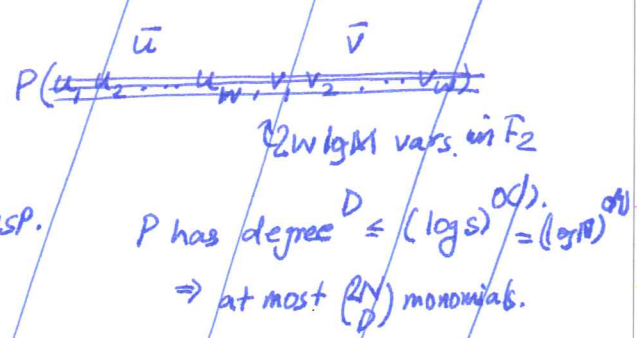 ū v̄
P(u₁ u₂ ... u_W, v₁ v₂ ... v_W)
2W lg M vars. in F₂
P has degree D ≤ (log s)^O(d).
⇒ at most (2N D) monomials.